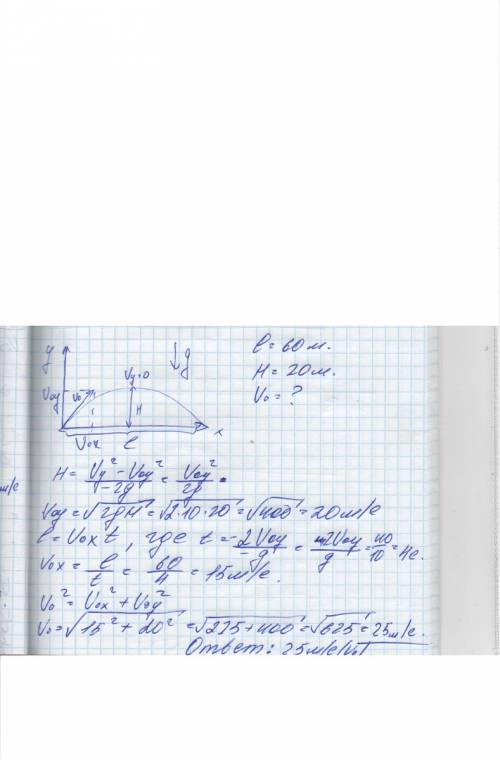 y
↓g
l = 60 м.
Vy=0
H = 20 м.
V₀y
V₀
H
V₀ = ?
x
V₀x
l
м/с
H = (Vy² - V₀y²)/(-2g) = V₀y²/2g
V₀y = √2gH = √2·10·20 = √400 = 20 м/с
l = V₀x t, где t = -2V₀y/-g = 2V₀y/g = 40/10 = 4 с.
V₀x = l/t = 60/4 = 15 м/с.
V₀² = V₀x² + V₀y²
V₀ = √15² + 20² = √225 + 400 = √625 = 25 м/с.
Ответ: 25 м/с